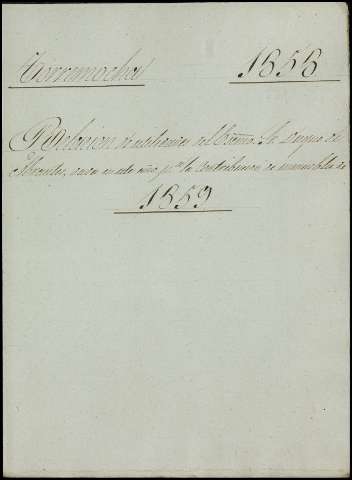 Torremocha 1858
Relacion de utilidades del Excmo. Sr. Duque de
Abrantes, dada en este año pª la contribucion de inmuebles de
1859